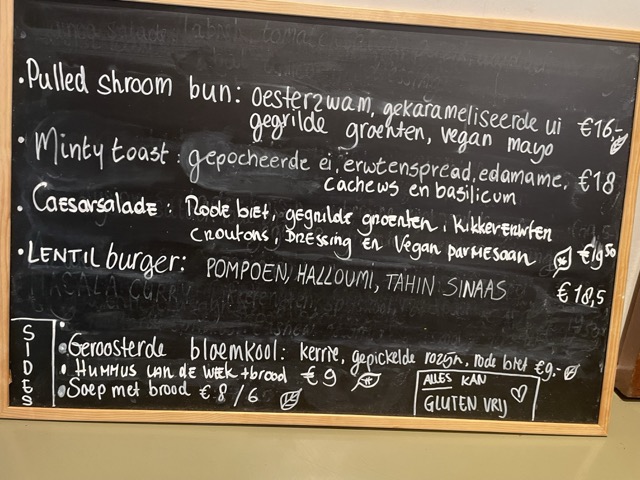 • Pulled shroom bun: oesterzwam, gekarameliseerde ui €16,-
gegrilde groenten, vegan mayo
• Minty toast: gepocheerde ei, erwtenspread, edamame, €18
cachews en basilicum
• CAESARSALADE: Rode biet, gegrilde groenten, KIKKERERWTEN
CROUTONS, DRESSING EN Vegan PARMESAAN €19,50
• LENTIL burger: POMPOEN, HALLOUMI, TAHIN SINAAS €18,5
SIDES
• Geroosterde bloemkool: kerrie, gepickelde rozijn, rode biet €9,-
• HUMMUS VAN DE WEEK + brood €9
• Soep met brood €8/6
ALLES KAN
GLUTEN VRIJ